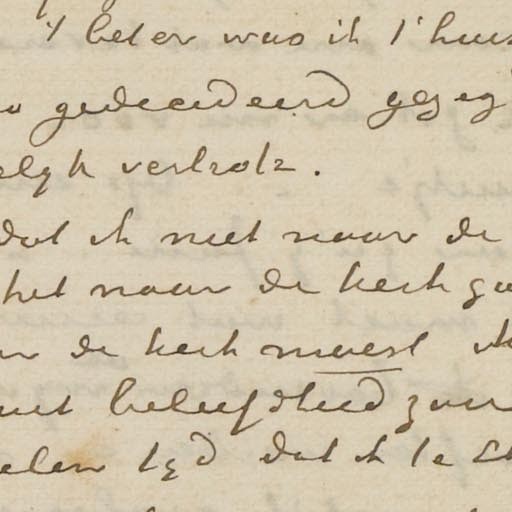 't beter was ik 't huis
gedecideerd gezeg
elyk vertrok.
dat ik niet naar de
het naar de kerk ga
de kerk moest ik
uit beleefdheid zou
elen tyd dat ik te Et